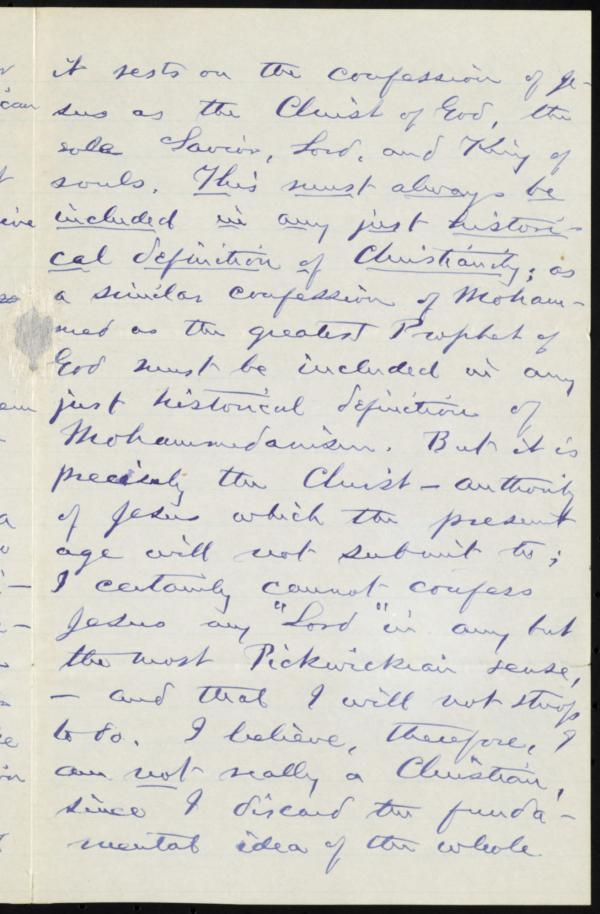 it rests on the confession of Je-
sus as the Christ of God, the
sole Savior, Lord, and King of
souls. This must always be
included in any just histori-
cal definition of Christianity; as
a similar confession of Moham-
med as the greatest Prophet of
God must be included in any
just historical definition of
Mohammedanism. But it is
precisely the Christ-authority
of Jesus which the present
age will not submit to;
I certainly cannot confess
Jesus my "Lord" in any but
the most Pickwickian sense,
— and that I will not stoop
to do. I believe, therefore, I
am not really a Christian,
since I discard the funda-
mental idea of the whole